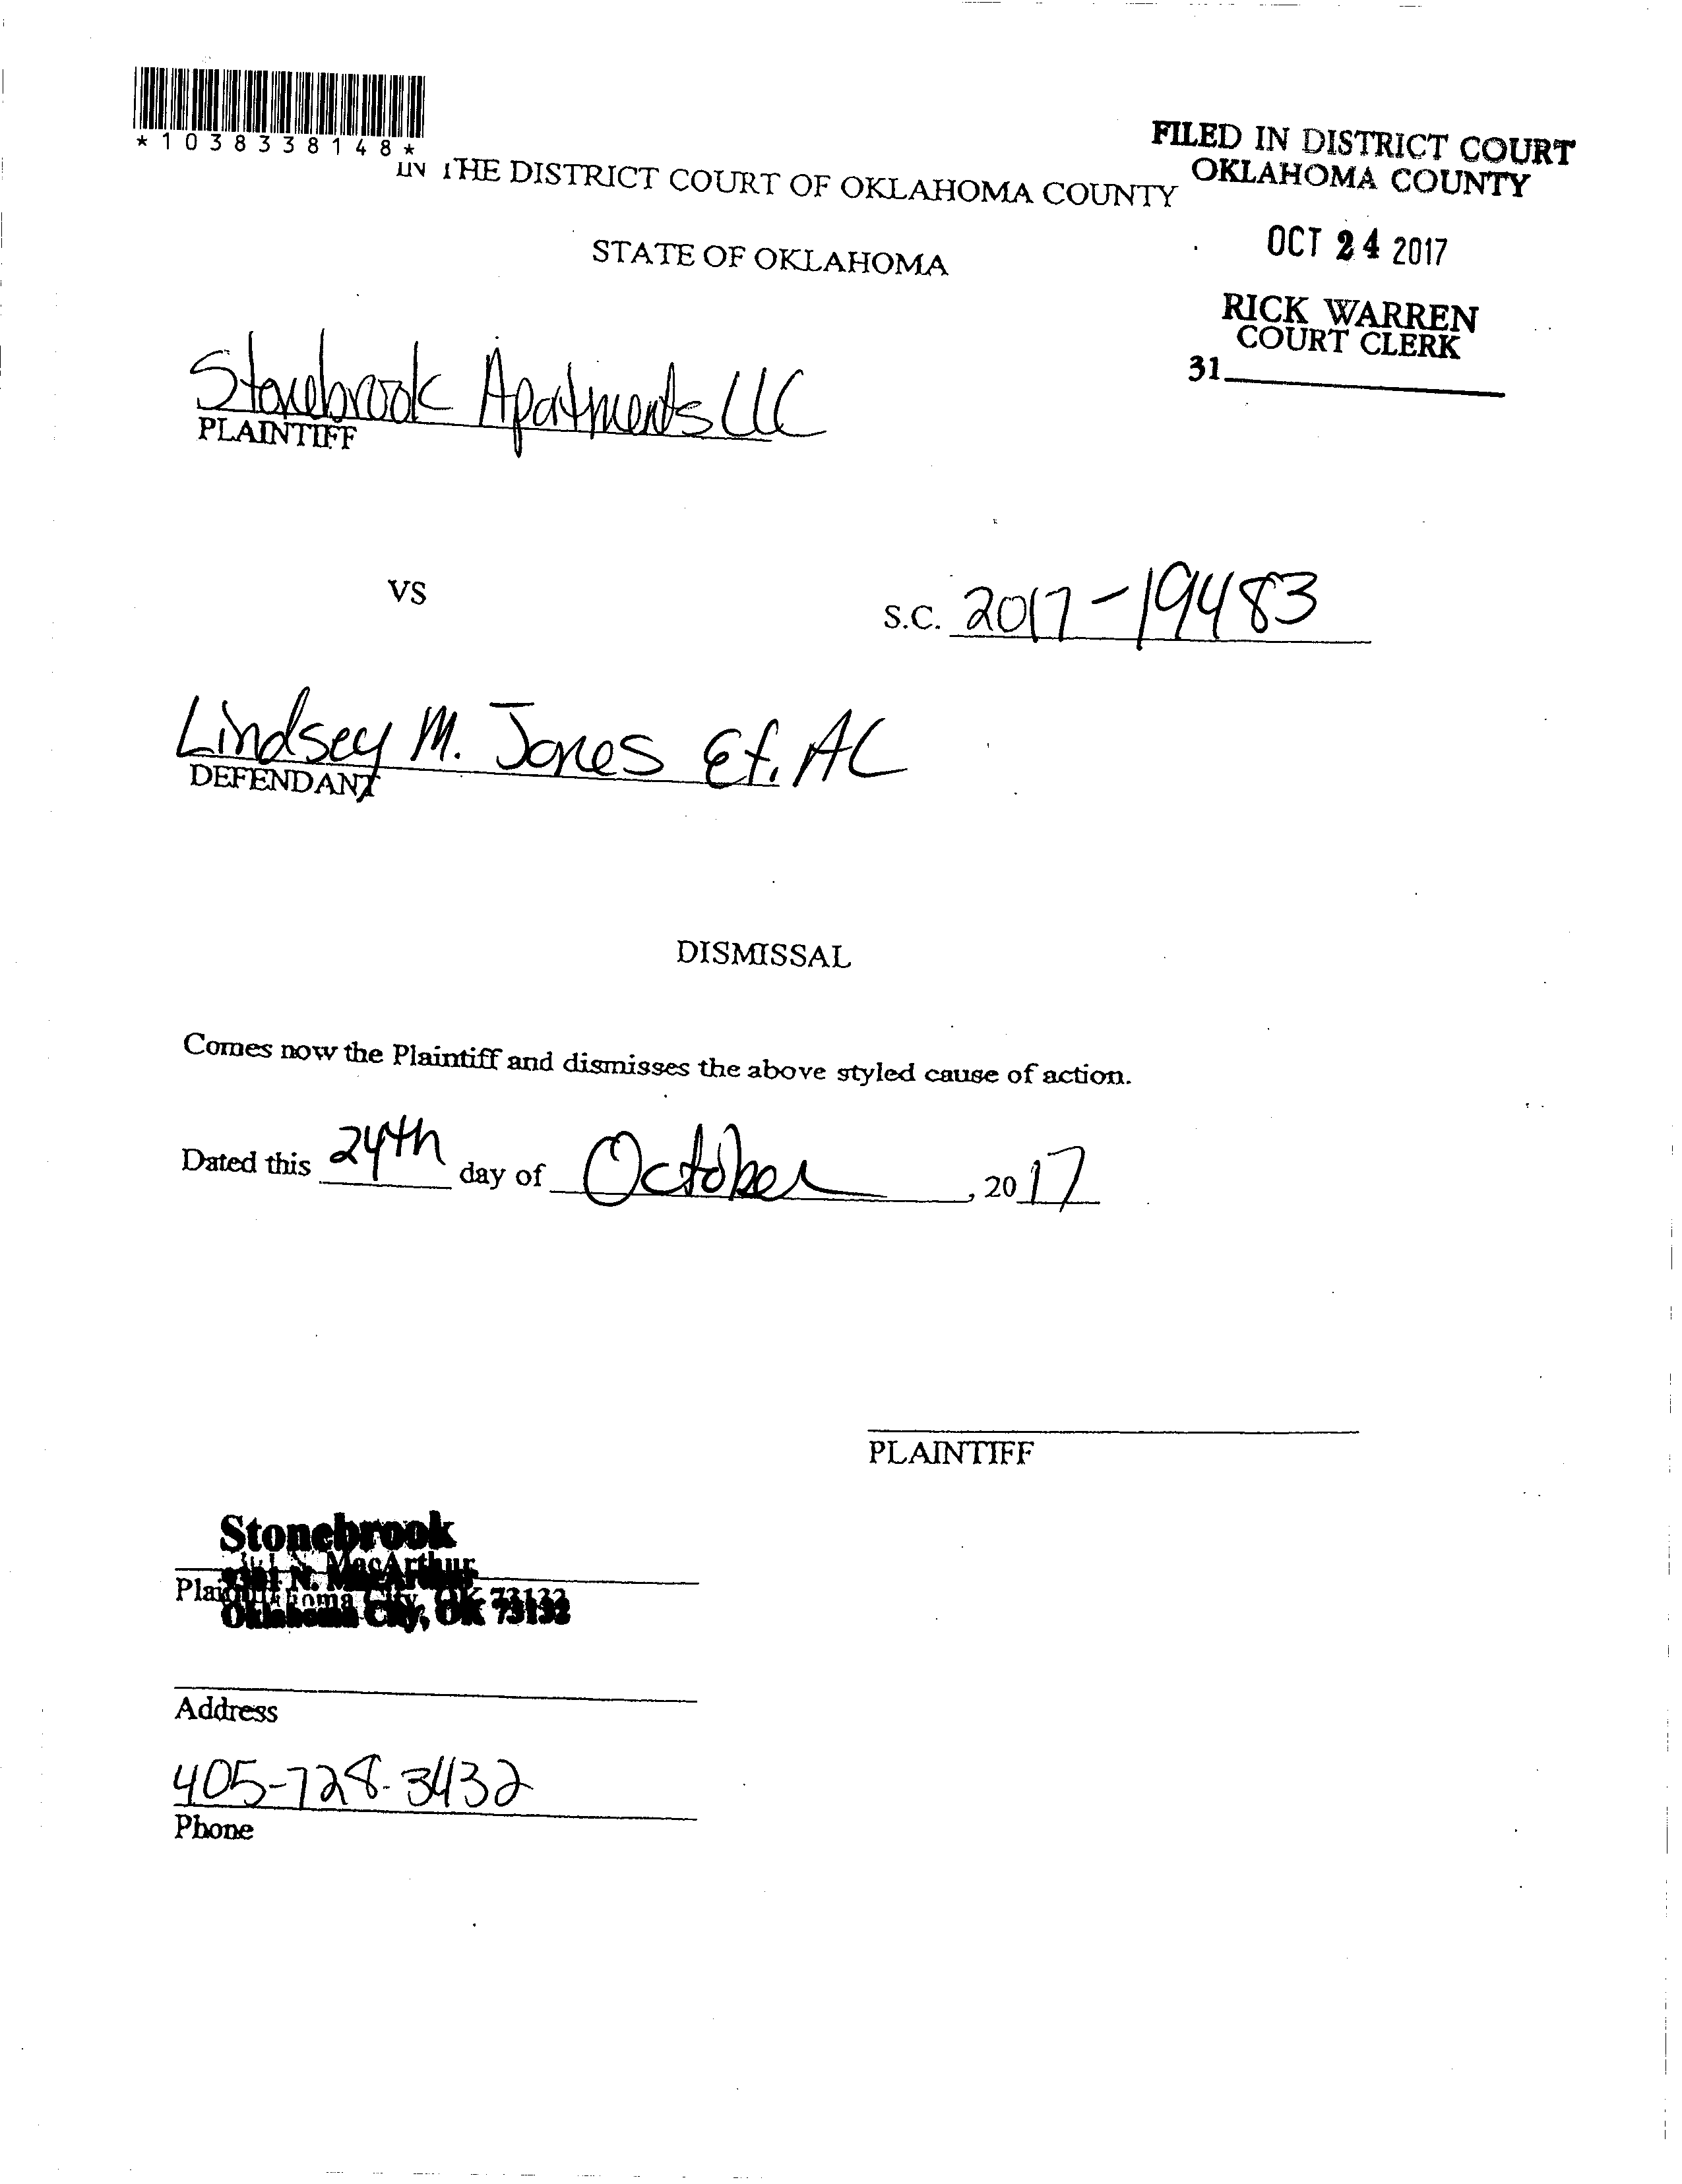 *1038338148*
FILED IN DISTRICT COURT
OKLAHOMA COUNTY
IN THE DISTRICT COURT OF OKLAHOMA COUNTY
OCT 24 2017
STATE OF OKLAHOMA
RICK WARREN
COURT CLERK
31
Stonebrook Apartments LLC
PLAINTIFF
VS
S.C. 2017-19483
Lindsey M. Jones Et. AL
DEFENDANT
DISMISSAL
Comes now the Plaintiff and dismisses the above styled cause of action.
Dated this 24th day of October, 2017
PLAINTIFF
Stonebrook
N. MacArthur
Oklahoma City, OK 73132
Address
405-728-3432
Phone